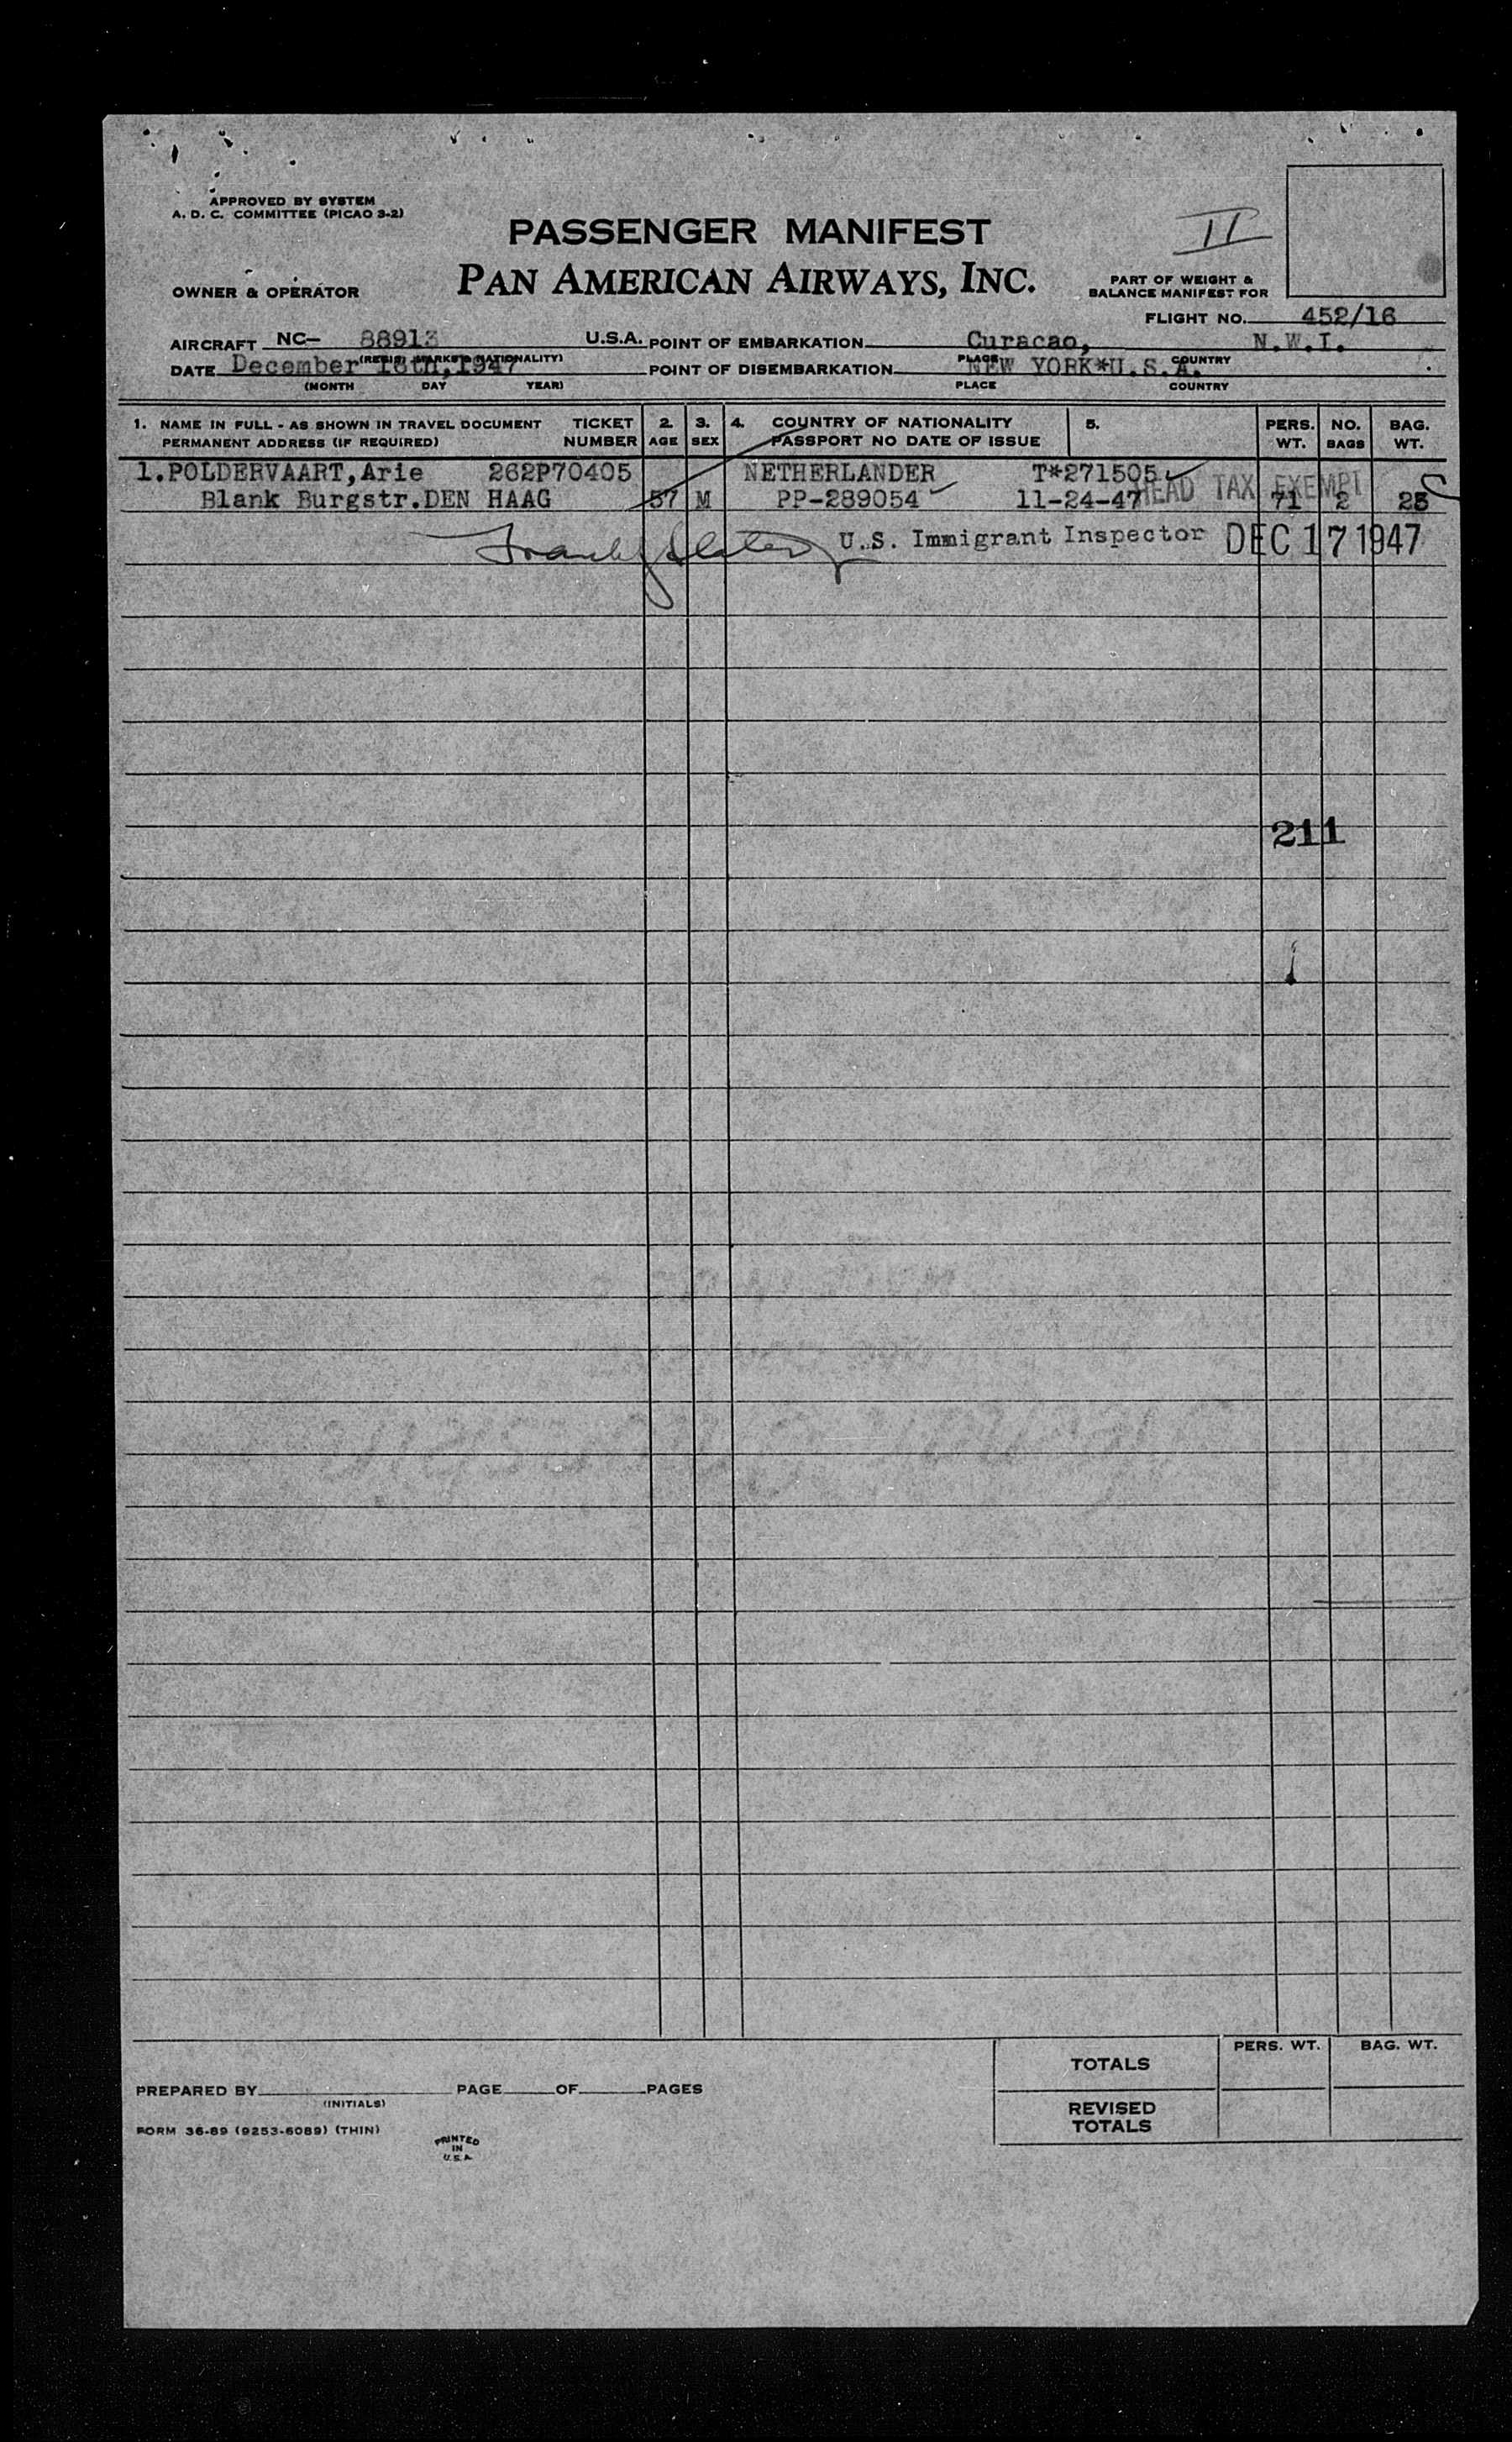 APPROVED BY SYSTEM
A. D. C. COMMITTEE (PICAO 3-2)
II
PASSENGER MANIFEST
OWNER & OPERATOR
PAN AMERICAN AIRWAYS, INC.
PART OF WEIGHT &
BALANCE MANIFEST FOR
FLIGHT NO. 452/16
AIRCRAFT NC- 88913 U.S.A. POINT OF EMBARKATION Curacao, N.W.I.
(REGIS. MARKS & NATIONALITY) PLACE COUNTRY
DATE December 16th, 1947 POINT OF DISEMBARKATION NEW YORK*U.S.A.
(MONTH DAY YEAR) PLACE COUNTRY
1. NAME IN FULL - AS SHOWN IN TRAVEL DOCUMENT TICKET 2. 3. 4. COUNTRY OF NATIONALITY 5. PERS. NO. BAG.
PERMANENT ADDRESS (IF REQUIRED) NUMBER AGE SEX PASSPORT NO DATE OF ISSUE WT. BAGS WT.
1.POLDERVAART,Arie 262P70405 NETHERLANDER T*271505
HEAD TAX EXEMPT
Blank Burgstr.DEN HAAG 57 M PP-289054 11-24-47 71 2
U.S. Immigrant Inspector DEC 17 1947
211
TOTALS PERS. WT. BAG. WT.
PREPARED BY PAGE OF PAGES
(INITIALS)
REVISED
TOTALS
FORM 36-89 (9253-6089) (THIN)
PRINTED
IN
U.S.A.